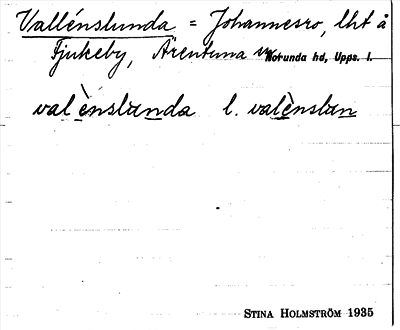 Vallénslunda = Johannesro, lht å
Tjukeby, Ärentuna sn Norunda hd, Upps. l.
valènslanda l. valènslan
STINA HOLMSTRÖM 1935